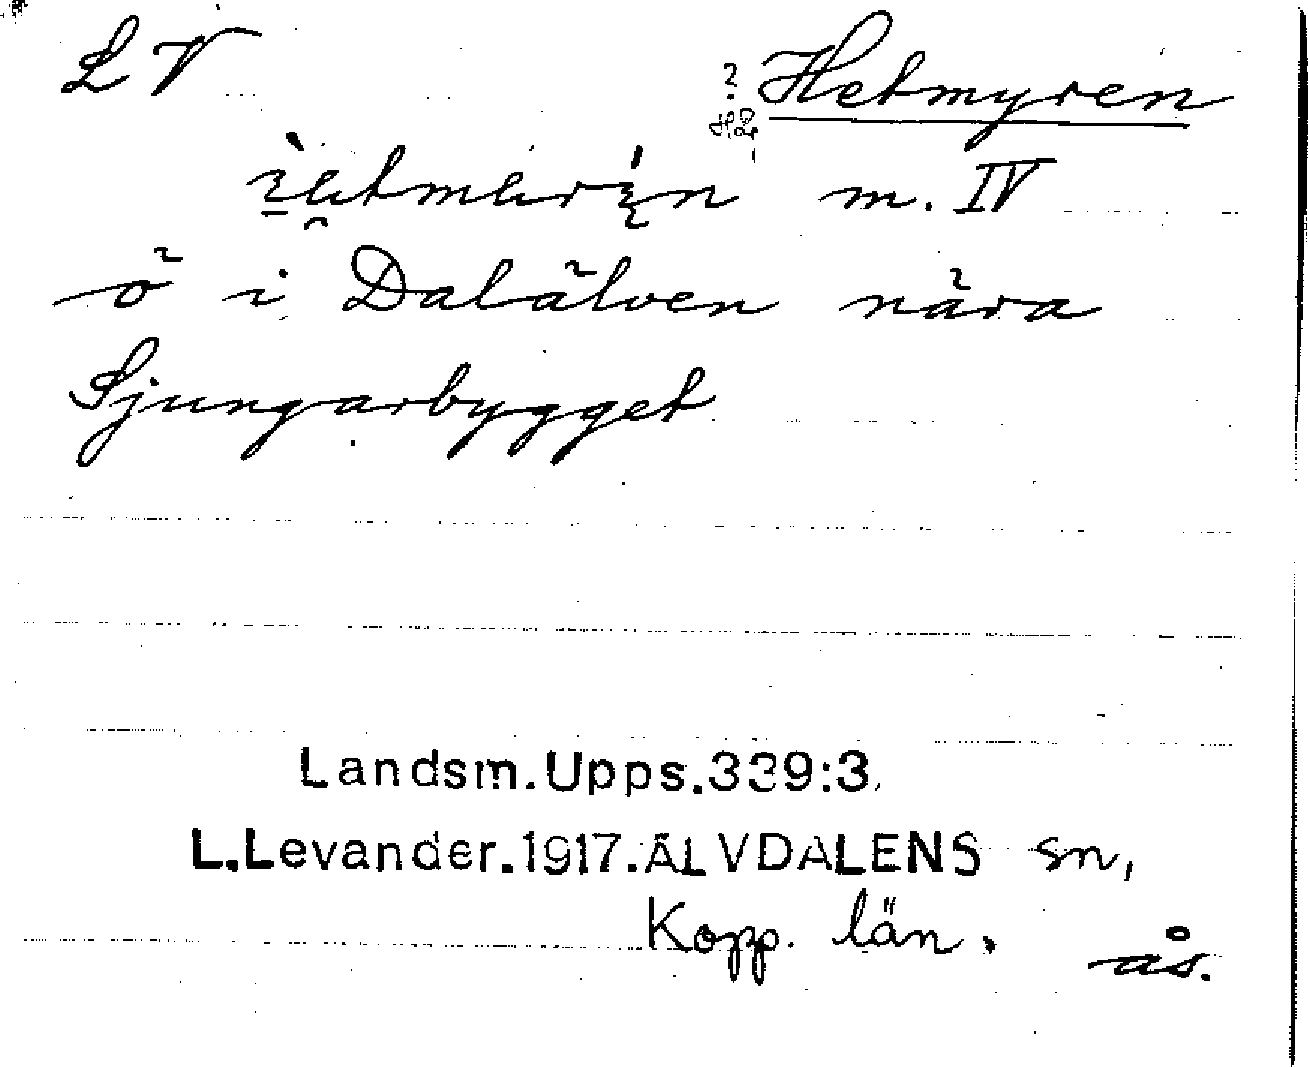 LV ? Hetmyren
HR
m. IV
ö i Dalälven nära
Sjungarbygget
Landsm.Upps.339:3.
L.Levander.1917.ÄLVDALENS sn,
Kopp. län.
ås.